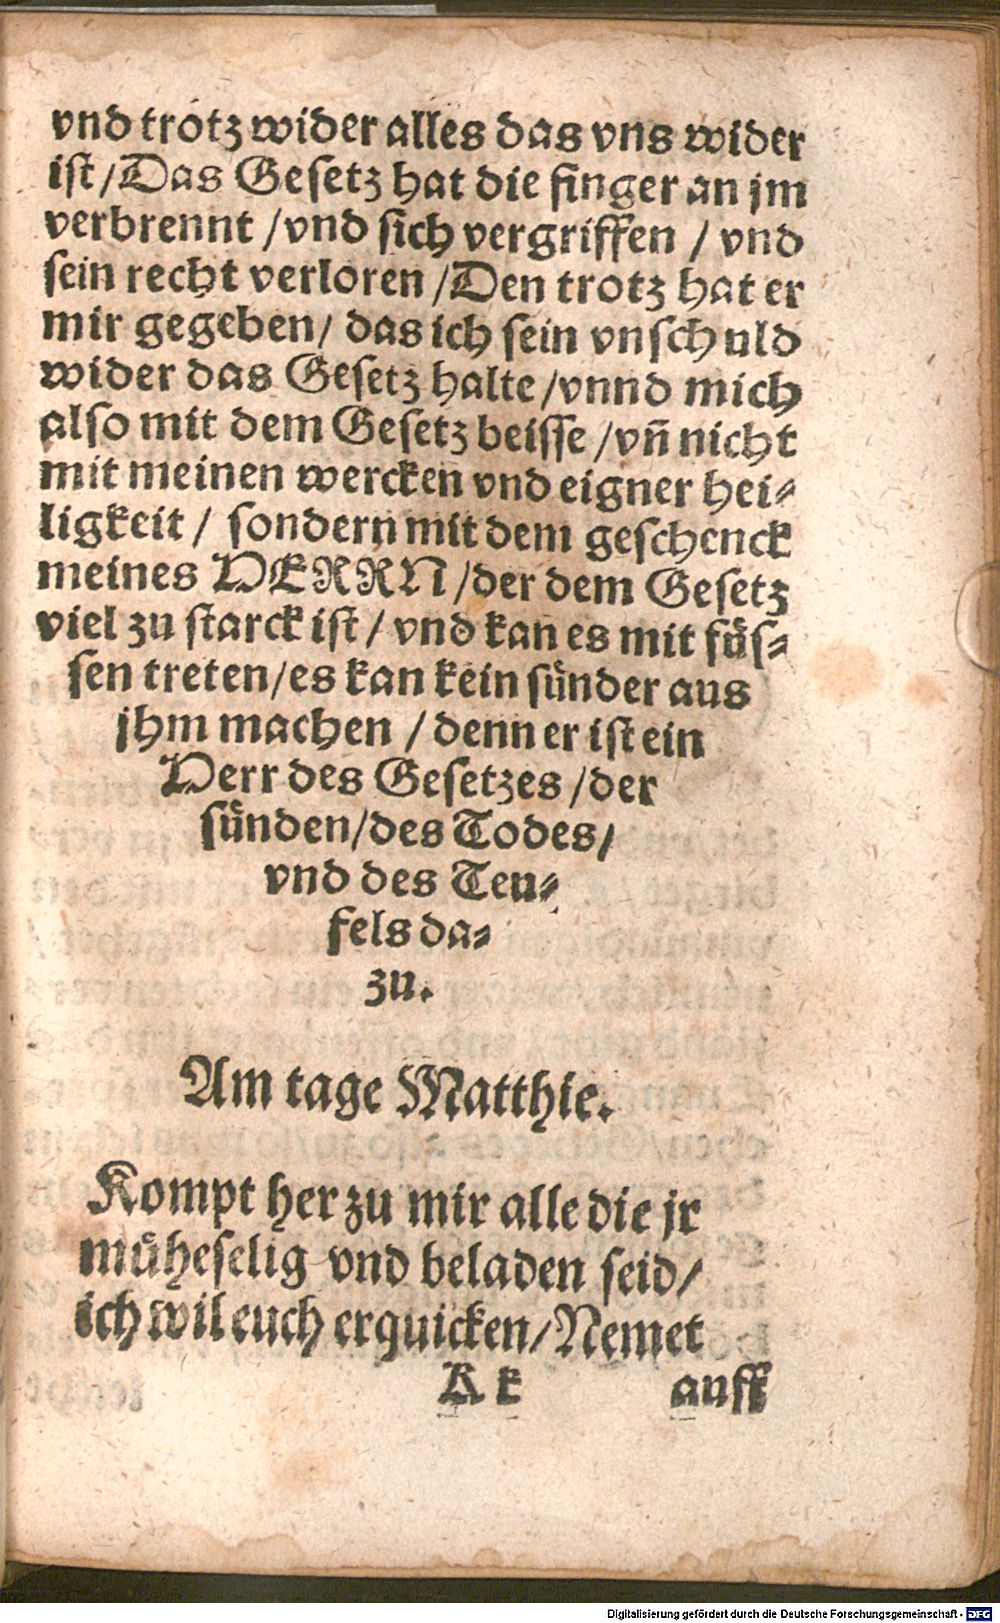 vnd trotz wider alles das vns wider
ist/Das Gesetz hat die finger an jm
verbrennt /vnd sich vergriffen / vnd
sein recht verloren /Den trotz hat er
mir gegeben/ das ich sein vnschuld
wider das Gesetz halte /vnnd mich
also mit dem Gesetz beisse /vn̄ nicht
mit meinen wercken vnd eigner hei-
ligkeit / sondern mit dem geschenck
meines HERRN /der dem Gesetz
viel zu starck ist / vnd kan es mit füs-
sen treten/es kan kein sünder aus
jhm machen / denn er ist ein
Herr des Gesetzes /der
sünden/des Todes/
vnd des Teu-
fels da-
zu.
Am tage Matthie.
Kompt her zu mir alle die jr
müheselig vnd beladen seid/
ich wil euch erquicken/Nemet
K k auff
Digitalisierung gefördert durch die Deutsche Forschungsgemeinschaft - DFG